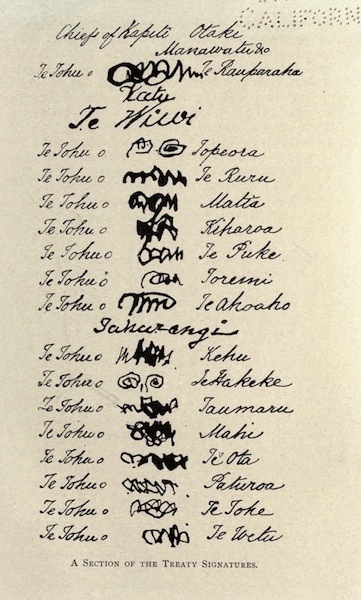 CALIFOR
Chiefs of Kapiti Otaki
Manawatu &c
Te Tohu o Te Rauparaha
Katu
Te Wiwi
Te Tohu o Topeora
Te Tohu o Te Ruru
Te Tohu o Matia
Te Tohu o Kiharoa
Te Tohu o Te Puke
Te Tohu o Toremi
Te Tohu o Te Ahoaho
Tahurangi
Te Tohu o Kehu
Te Tohu o Te Hakeke
Te Tohu o Taumaru
Te Tohu o Mahi
Te Tohu o Te Ota
Te Tohu o Paturoa
Te Tohu o Te Toke
Te Tohu o Te Wetu
A SECTION OF THE TREATY SIGNATURES.